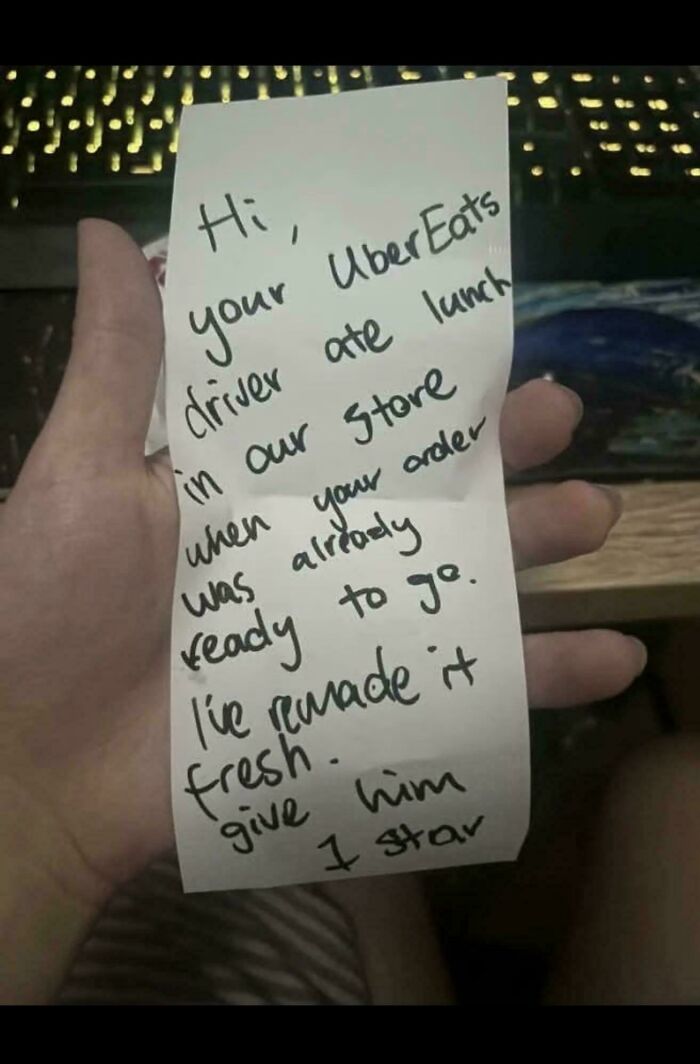 Hi,
your UberEats
driver ate lunch
in our store
when your order
was already
ready to go.
I've remade it
fresh.
give him
1 star